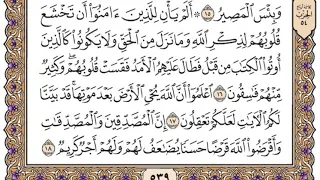 الحزب
٥٤
وَبِئْسَ الْمَصِيرُ ١٥ ۞ أَلَمْ يَأْنِ لِلَّذِينَ ءَامَنُوا أَن تَخْشَعَ
قُلُوبُهُمْ لِذِكْرِ اللَّهِ وَمَا نَزَلَ مِنَ الْحَقِّ وَلَا يَكُونُوا كَالَّذِينَ
أُوتُوا الْكِتَٰبَ مِن قَبْلُ فَطَالَ عَلَيْهِمُ الْأَمَدُ فَقَسَتْ قُلُوبُهُمْ ۖ وَكَثِيرٌ
مِّنْهُمْ فَٰسِقُونَ ١٦ اعْلَمُوا أَنَّ اللَّهَ يُحْيِ الْأَرْضَ بَعْدَ مَوْتِهَا ۚ قَدْ بَيَّنَّا
لَكُمُ الْآيَٰتِ لَعَلَّكُمْ تَعْقِلُونَ ١٧ إِنَّ الْمُصَّدِّقِينَ وَالْمُصَّدِّقَٰتِ
وَأَقْرَضُوا اللَّهَ قَرْضًا حَسَنًا يُضَٰعَفُ لَهُمْ وَلَهُمْ أَجْرٌ كَرِيمٌ ١٨
٥٣٩